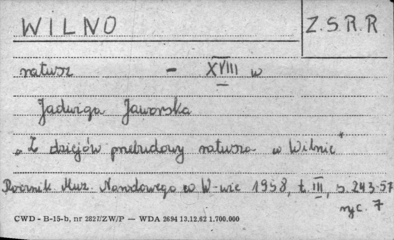 WILNO
Z.S.R.R
ratusz - XVIII w
Jadwiga Jaworska
„Z dziejów przebudowy ratusza w Wilnie"
Rocznik Muz. Narodowego w W-wie 1958, t. III, s. 243-57
ryc. 7
CWD - B-15-b, nr 2827/ZW/P — WDA 2694 13.12.62 1.700.000